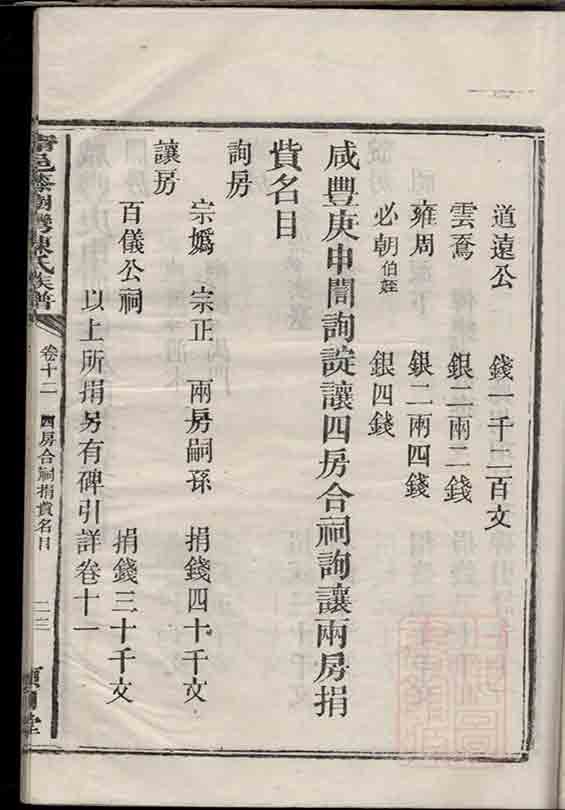 道遠公 錢一千二百文
雲騫 銀二兩二錢
雍周 銀二兩四錢
必朝伯姪 銀四錢
咸豐庚申誾詢諚讓四房合祠詢讓兩房捐
貲名目
詢房
宗嬀 宗正 兩房嗣孫 捐錢四十千文
讓房
百儀公祠 捐錢三十千文
以上所捐另有碑引詳卷十一
陳氏族譜
卷十二 四房合祠捐貲名目
堂